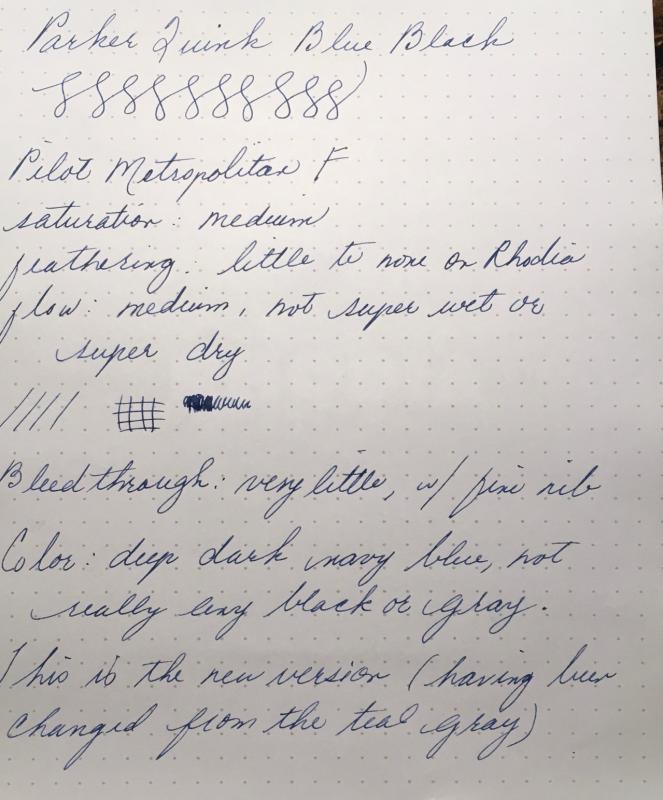 Parker Quink Blue Black
Pilot Metropolitan F
saturation: medium
feathering: little to none on Rhodia
flow: medium, not super wet or
super dry
Bleedthrough: very little, w/ fine nib
Color: deep dark navy blue, not
really any black or gray.
This is the new version (having been
changed from the teal gray)